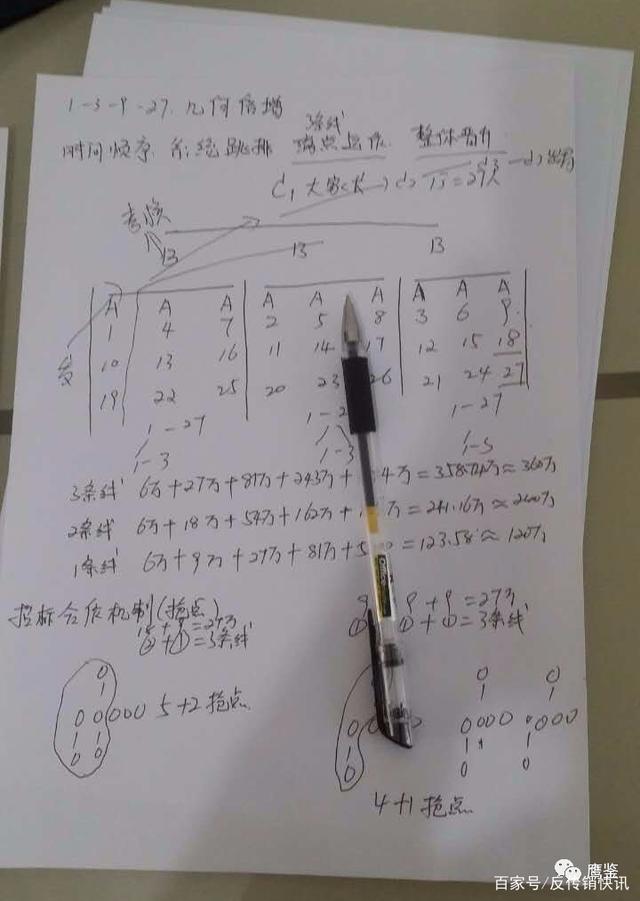 1-3-9-27. 几何倍增
3条线
时间顺序. 系统跳排 端点占位. 整体晋升
C1 大家(
C2 1万=27人
C3
考核
13 13 13
A A A A A A A A A
1 4 7 2 5 8 3 6 9
10 13 16 11 14 17 12 15 18
19 22 25 20 23 26 21 24 27
1-27 1-2 1-27
1-3 1-3 1-3
3条线 6万+27万+81万+243万+ 4万=358.74万≈360万
2条线 6万+18万+54万+162万+ 万=241.16万≈240万
1条线 6万+9万+27万+81万+ =123.58≈120万
招标合成机制(抢点)
18+9=27万
②+①=3条线
9 9+9=27万
① ①+①=3条线
0 0 0
1 1 1
00000 5+2抢点
0 0000 0000
11 1 1 1
00 0 0 0
4+1抢点
鹰鉴
百家号/反传销快讯